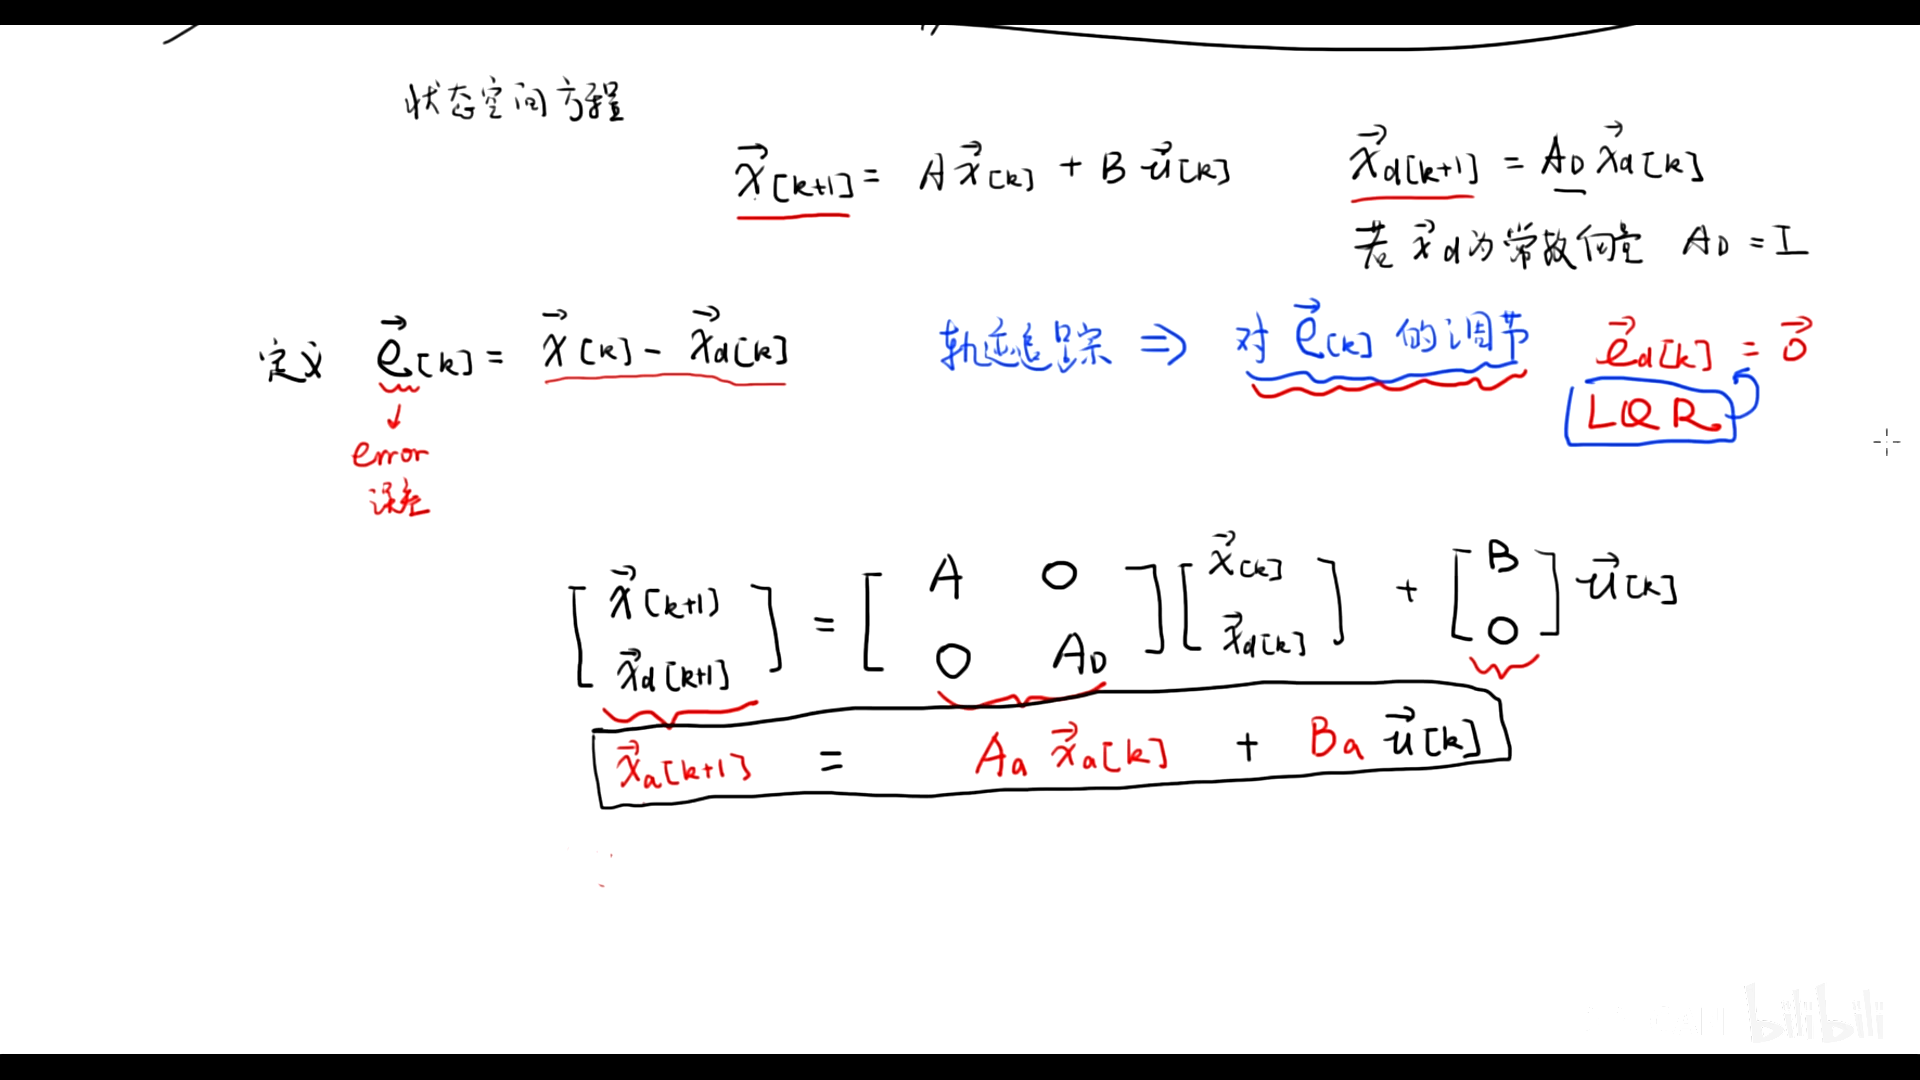 状态空间方程
x⃗[k+1] = A x⃗[k] + B u⃗[k]
x⃗d[k+1] = AD x⃗d[k]
若 x⃗d 为常数向量 AD = I
定义 e⃗[k] = x⃗[k] - x⃗d[k]
轨迹追踪 ⇒ 对 e⃗[k] 的调节
e⃗d[k] = 0⃗
LQR
error
误差
[x⃗[k+1] x⃗d[k+1]] = [A 0 0 AD] [x⃗[k] x⃗d[k]] + [B 0] u⃗[k]
x⃗a[k+1] = Aa x⃗a[k] + Ba u⃗[k]
bilibili